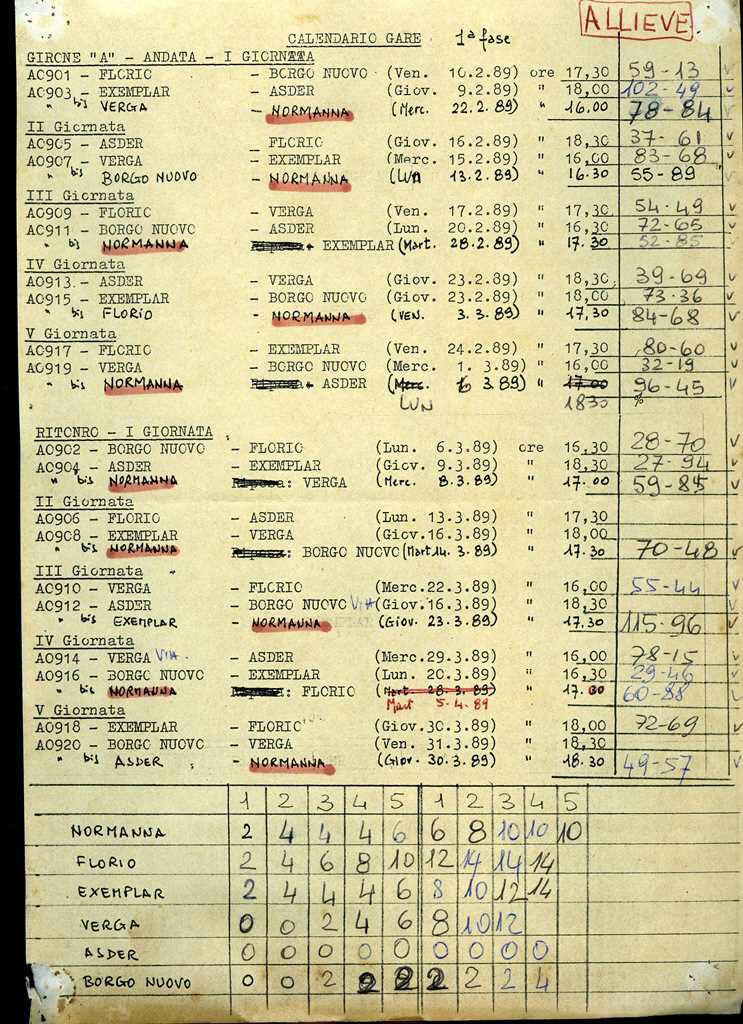 ALLIEVE
CALENDARIO GARE 1ª fase
GIRONE "A" - ANDATA - I GIORNATA
A0901 - FLORIO - BORGO NUOVO (Ven. 10.2.89) ore 17,30 59-13 v
A0903 - EXEMPLAR - ASDER (Giov. 9.2.89) " 18,00 102-49 v
" bis VERGA - NORMANNA (Merc. 22.2.89) " 16.00 78-84 v
II Giornata
A0905 - ASDER - FLORIO (Giov. 16.2.89) " 18,30 37-61 v
A0907 - VERGA - EXEMPLAR (Merc. 15.2.89) " 16,00 83-68 v
" bis BORGO NUOVO - NORMANNA (LUN 13.2.89) " 16.30 55-89 v
III Giornata
A0909 - FLORIO - VERGA (Ven. 17.2.89) " 17,30 54-49 v
A0911 - BORGO NUOVO - ASDER (Lun. 20.2.89) " 16,30 72-65 v
" bis NORMANNA Riposa: EXEMPLAR (Mart. 28.2.89) " 17.30 52-85 v
IV Giornata
A0913 - ASDER - VERGA (Giov. 23.2.89) " 18,30 39-69 v
A0915 - EXEMPLAR - BORGO NUOVO (Giov. 23.2.89) " 18,00 73-36 v
" bis FLORIO - NORMANNA (VEN. 3.3.89) " 17,30 84-68 v
V Giornata
A0917 - FLORIO - EXEMPLAR (Ven. 24.2.89) " 17,30 80-60 v
A0919 - VERGA - BORGO NUOVO (Merc. 1. 3.89) " 16,00 32-19 v
" bis NORMANNA Riposa: ASDER (Merc. 6 3.89) " 17.00 96-45 v
LUN 1830 %
RITONRO - I GIORNATA
A0902 - BORGO NUOVO - FLORIO (Lun. 6.3.89) ore 16,30 28-70 v
A0904 - ASDER - EXEMPLAR (Giov. 9.3.89) " 18,30 27-94 v
" bis NORMANNA Riposa: VERGA (Merc. 8.3.89) " 17.00 59-85 v
II Giornata
A0906 - FLORIO - ASDER (Lun. 13.3.89) " 17,30
A0908 - EXEMPLAR - VERGA (Giov.16.3.89) " 18,00
" bis NORMANNA Riposa: BORGO NUOVO (Mart 14. 3.89) " 17.30 70-48 v
III Giornata
A0910 - VERGA - FLORIO (Merc.22.3.89) " 16,00 55-44 v
A0912 - ASDER - BORGO NUOVO VIA (Giov.16.3.89) " 18,30 v
" bis EXEMPLAR - NORMANNA (Giov. 23.3.89) " 17.30 115-96 v
IV Giornata
A0914 - VERGA VIA - ASDER (Merc.29.3.89) " 16,00 78-15 v
A0916 - BORGO NUOVO - EXEMPLAR (Lun. 20.3.89) " 16,30 29-46 v
" bis NORMANNA Riposa: FLORIO (Mart 28.3.89) " 17.30 60-88 v
Mart 5.4.89
V Giornata
A0918 - EXEMPLAR - FLORIO (Giov.30.3.89) " 18,00 72-69 v
A0920 - BORGO NUOVO - VERGA (Ven. 31.3.89) " 18,30
" bis ASDER - NORMANNA (Giov. 30.3.89) " 18.30 49-57 v
1 2 3 4 5 1 2 3 4 5
NORMANNA 2 4 4 4 6 6 8 10 10 10
FLORIO 2 4 6 8 10 12 14 14 14
EXEMPLAR 2 4 4 4 6 8 10 12 14
VERGA 0 0 2 4 6 8 10 12
ASDER 0 0 0 0 0 0 0 0 0
BORGO NUOVO 0 0 2 2 2 2 2 2 4